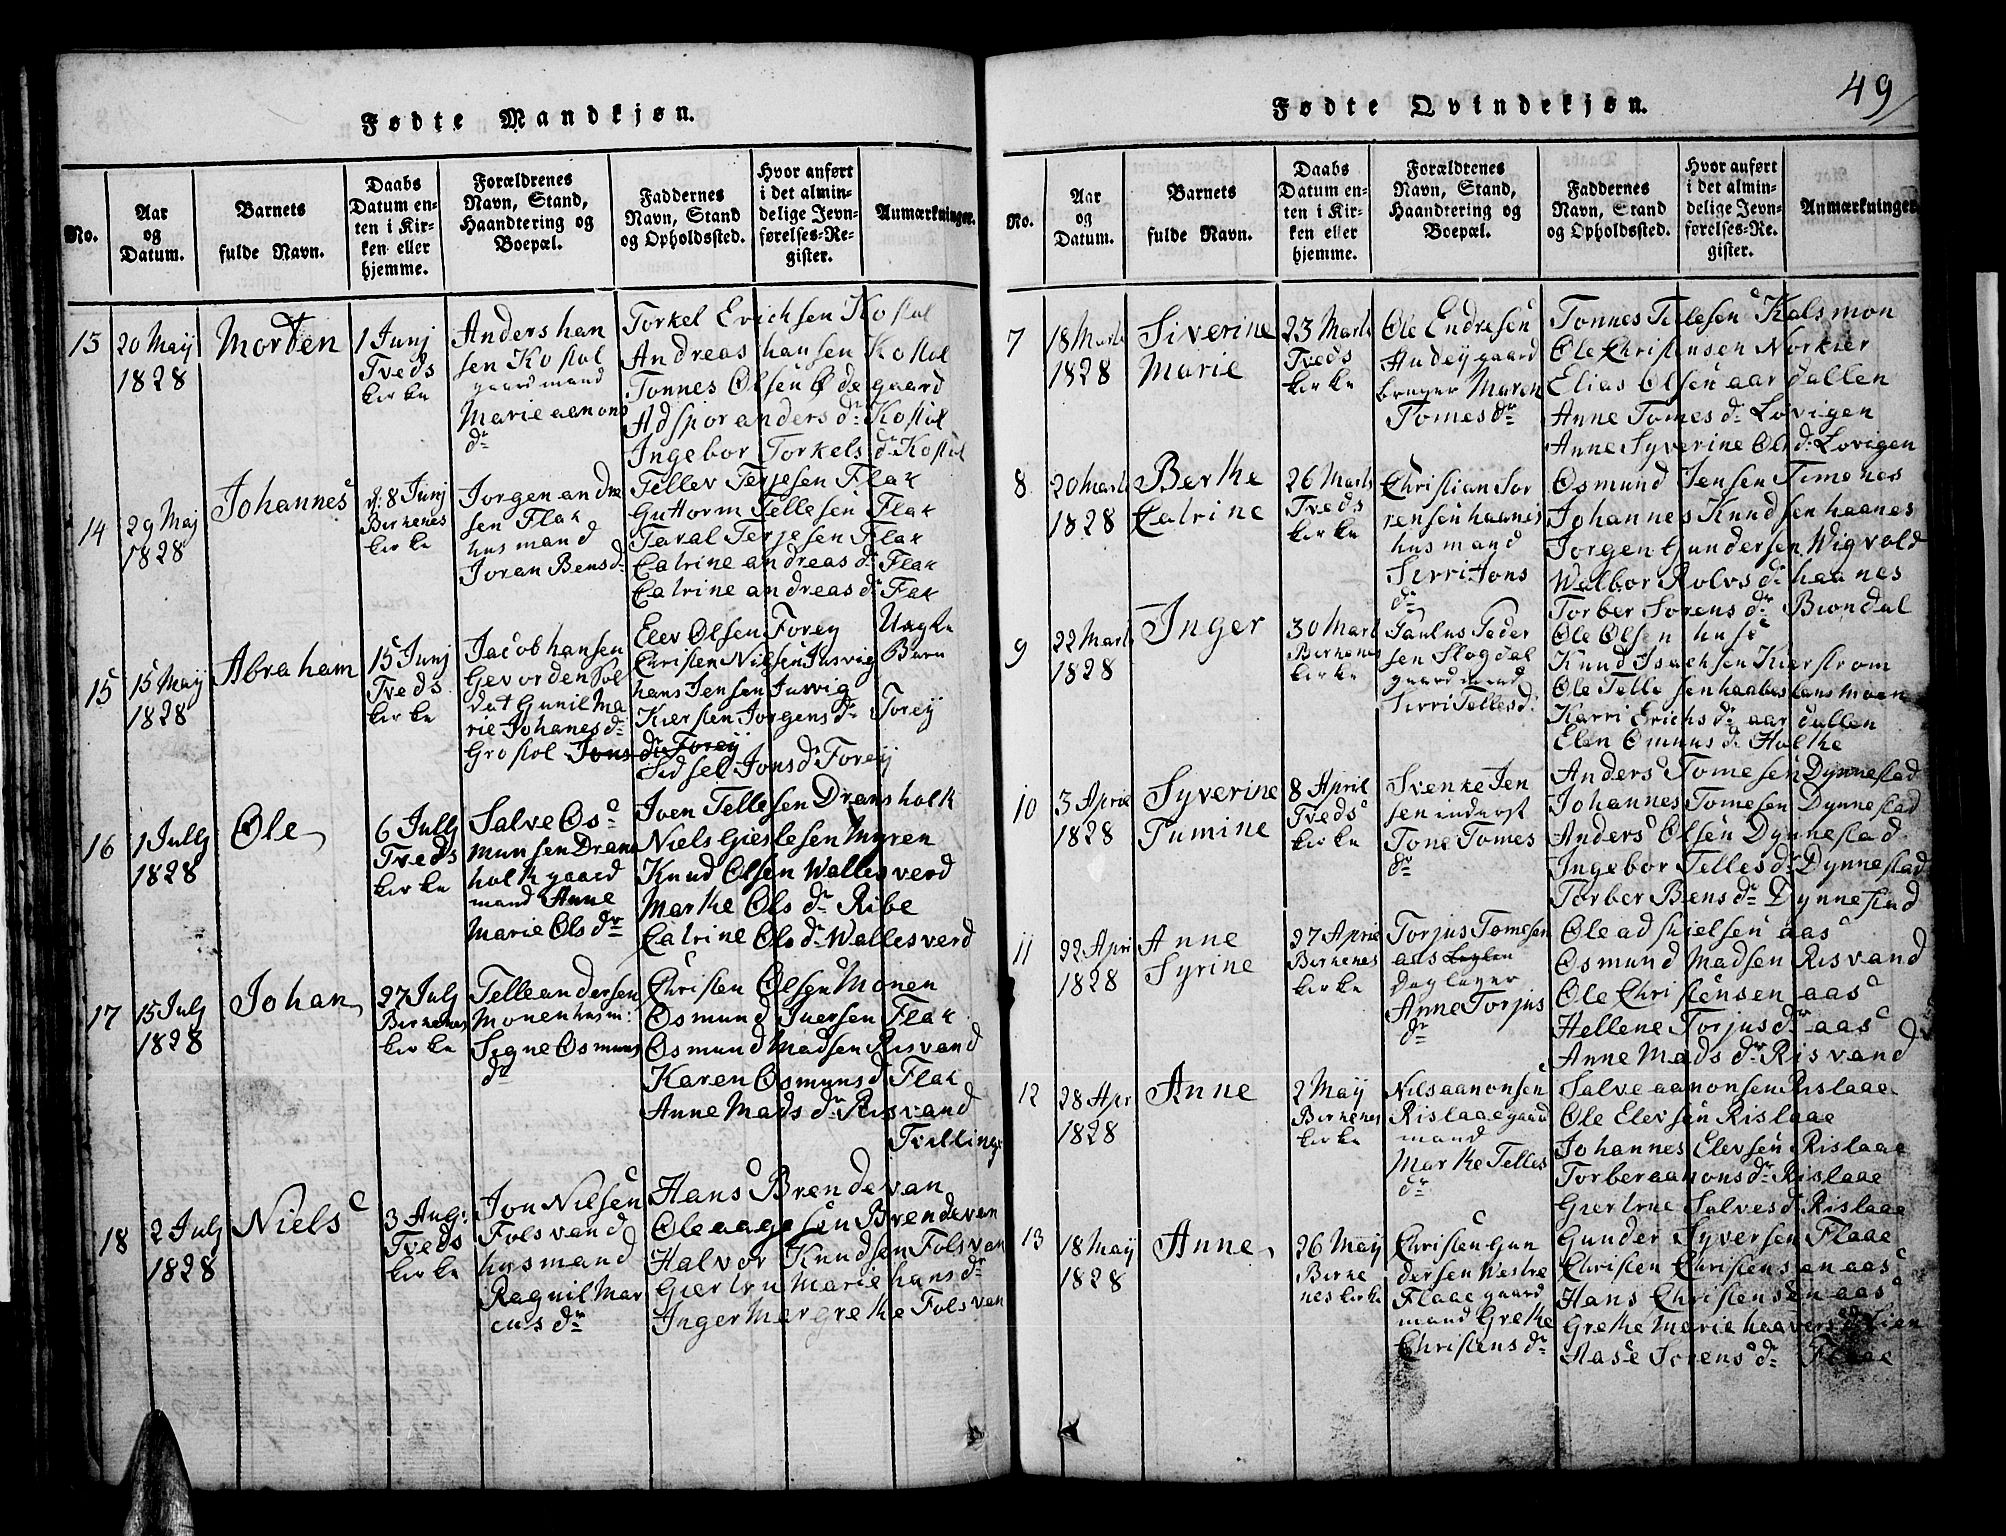 Fødte Mandkjøn.
No.
Aar og Datum.
Barnets fulde Navn.
Daabs Datum enten i Kirken eller hjemme.
Forældrenes Navn, Stand, Haandtering og Boepæl.
Faddernes Navn, Stand og Opholdssted.
Hvor anført i det almindelige Jevnførelses-Register.
Anmærkninger.
15
20 Maij
1828
Morten
1 Junj
Tveds
kirke
Anders han
sen Kostøl
gaardmand
Marie aamons
dr
Torkel Erichsen Kostøl
Andreas hansen Kostøl
Tonnes Olsen Ødegaard
Adspor anders dr Kostøl
Ingebor Torkels dr Kostøl
14
29 Maj
1828
Johannes
d: 8 Junj
Birkenes
kirke
Jorgen andre
sen Flak
husmand
Joran Bens dr
Tellev Terjesen Flak
Guttorm Tellesen Flak
Taral Terjesen Flak
Catrine andreas dr Flak
Catrine andreas dr Flak
15
15 Maij
1828
Abraham
15 Junj
Tveds
kirke
Jacob hansen
Gevorden Sol
dat Gunil Ma
rie Johanes dr
Grostøl
Elev Olsen Forey
Christen Nilsen Jusvig
hans Jensen Jusvig
Kiersten Jorgens dr Forey
Jons dr Forey
Sidsel Jons dr Forey
Uægte
Barn
16
1 Jullj
1828
Ole
6 Jullj
Tveds
kirke
Salve Os
munsen Drans
holt gaard
mand Anne
Marie Ols dr
Iven Tellesen Dransholt
Niels Gieslesen Myren
Knud Olsen Wallesverd
Marthe Ols dr Ribe
Catrine Ols dr Wallesverd
17
15 Julj
1828
Johan
27 Julj
Birkenes
kirke
Telle andersen
Monen husm:
Signe Osmuns
dr
Christen Olsen Monen
Osmund Iversen Flak
Osmund Madsen Risvand
Karen Osmuns d Flak
Anne Mads dr Risvand
Tvilling
18
2 Julj
1828
Niels
3 Aug:
Tveds
kirke
Jon Nilsen
Folsvand
husmand
Ragnil Mar
cus dr
Hans Brendevan
Ole aagesen Brendevan
Halvor Knudsen Folsvan
Giertru Marie hans dr
Inger Margrethe Folsvan
49
Fødte Qvindekjøn.
No.
Aar og Datum.
Barnets fulde Navn.
Daabs Datum enten i Kirken eller hjemme.
Forældrenes Navn, Stand, Haandtering og Boepæl.
Faddernes Navn, Stand og Opholdssted.
Hvor anført i det almindelige Jevnførelses-Register.
Anmærkninger
7
18 Marts
1828
Siverine
Marie
23 Marts
Tveds
kirke
Ole Endresen
gaard
bruger Maren
Tomes dr
Tonnes Tellesen Kalsmon
Ole Christensen Norkier
Elias Olsen aardallen
Anne Tomes dr Løvigen
Anne Syverine Ols d: Løvigen
8
20 Marts
1828
Berthe
Catrine
26 Marts
Tveds
kirke
Christian Sør
rensen haanes
husmand
Sirri Jons
dr
Osmund Jensen Timenes
Johannes Knudsen haanes
Jorgen Gundersen Wigvold
Walbor Rolvs dr haanes
Torber Sorens dr Biondal
9
22 Marts
1828
Inger
30 Marts
Birkenes
kirke
Paulus Peder
sen Slogdal
gaardmand
Sirri Telles d:
Ole Olsen huse
Knud Isachsen Kierstrom
Ole Tellesen
Karri Erichs dr aardallen
Elen Omuns dr Holthe
10
3 April
1828
Syverine
Tumine
8 April
Tveds
kirke
Svenke Jen
sen inderst
Tone Tomes
dr
Anders Tomesen Dynnestad
Johannes Tomesen Dynnestad
Anders Olsen Dynnestad
Ingebor Telles dr Dynnestad
Torber Bens dr Dynnestad
11
22 Apri
1828
Anne
Syrine
27 April
Birkenes
kirke
Torjus Tomesen
aas
dagleyer
Anne Torjus
dr
Ole adskielsen aas
Osmund Madsen Risvand
Ole Christensen aas
Hellene Torjus dr aas
Anne Mads dr Risvand
12
28 Apr
1828
Anne
2 Maij
Birkenes
kirke
Nils aanonsen
Rislaae gaard
mand
Marthe Telles
dr
Salve aanonsen Rislaae
Ole Elevsen Rislaae
Johannes Elevsen Rislaae
Torber aanons dr Rislaae
Giertrue Salves d Rislaae
13
18 Maij
1828
Anne
26 Maij
Birke
nes kirke
Christen Gun
dersen Westre
Flaae gaard
mand Grethe
Christens dr
Gunder Syversen Flaae
Christen Christensen aas
Hans Christensen aas
Grethe Marie haavers d Lien
Aase Sorens dr Flaae